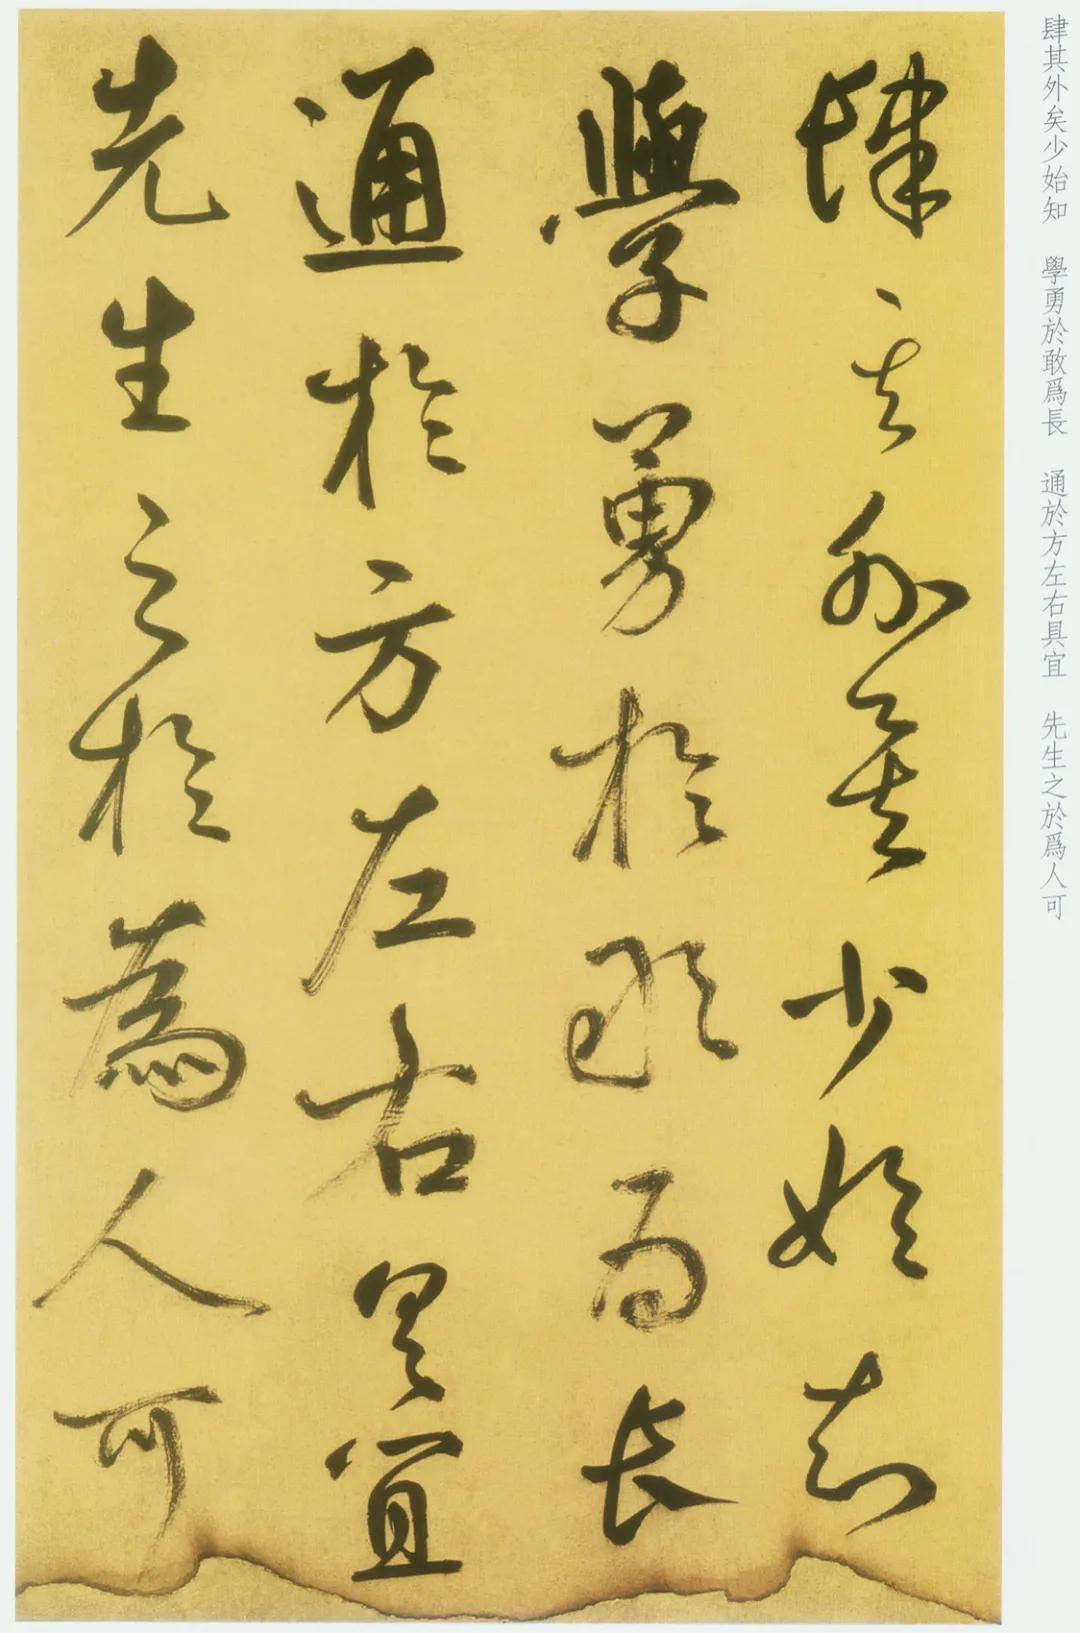 肆其外矣少始知 學勇於敢爲長 通於方左右具宜 先生之於爲人可
肆其外矣少始知
學勇於敢為長
通於方左右具宜
先生之於為人可